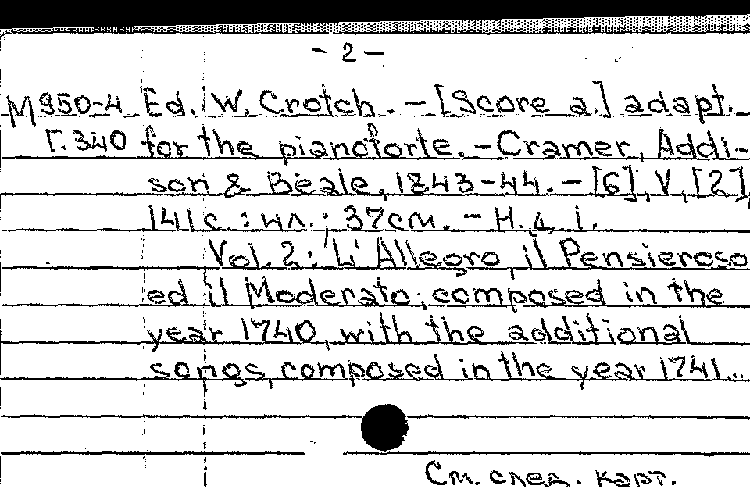 - 2 -
М950-4 Ed. W. Crotch. - [Score a.] adapt.
Г.340 for the pianoforte. - Cramer, Addi-
son & Beale, 1843-44. - [6], V, [2],
141 с. : ил. ; 37 см. - Н. д. 1.
Vol. 2: L'Allegro, il Pensieroso
ed il Moderato; composed in the
year 1740, with the additional
songs, composed in the year 1741...
См. след. карт.